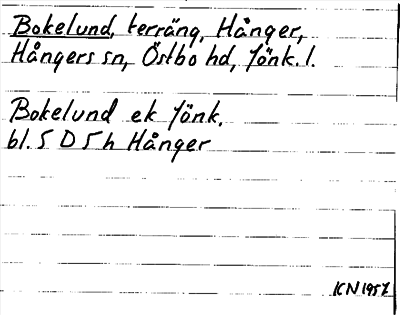 Bokelund, terräng, Hånger,
Hångers sn, Östbo hd, Jönk. l.
Bokelund ek Jönk.
bl. 5 D 5 h Hånger
KN 1957